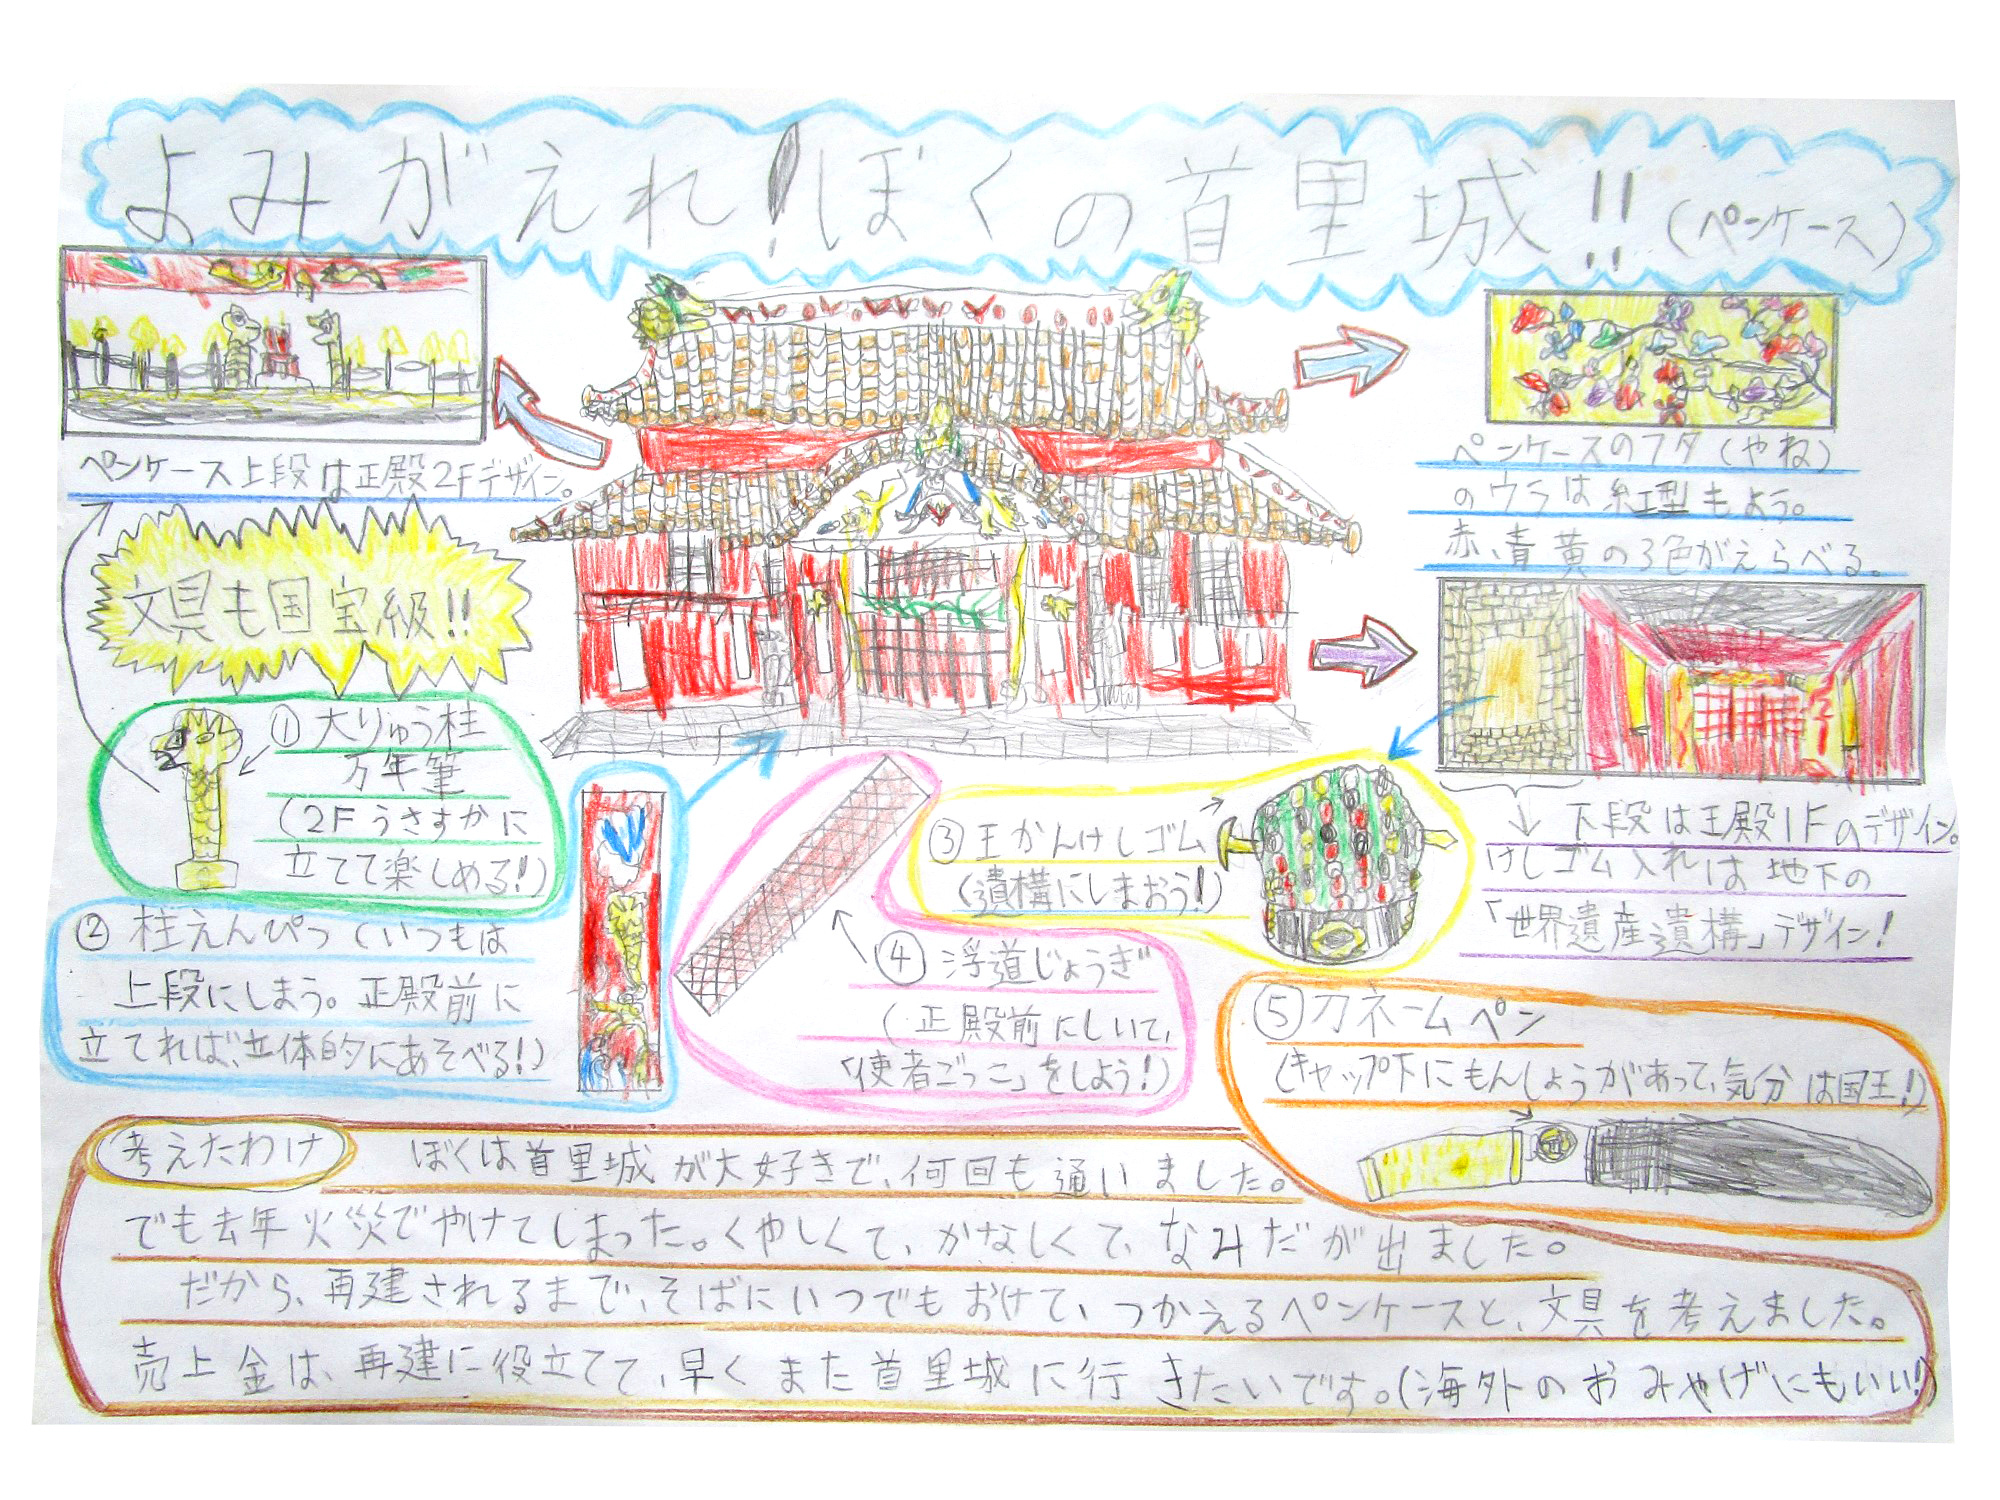 よみがえれ!ぼくの首里城!!(ペンケース)
ペンケース上段は正殿2Fデザイン。
文具も国宝級!!
ペンケースのフタ(やね)
のウラは紅型もよう。
赤、青黄の3色がえらべる。
①大りゅう柱
万年筆
(2Fうさすかに
立てて楽しめる!)
②柱えんぴつ(いつもは
上段にしまう。正殿前に
立てれば、立体的にあそべる!)
③王かんけしゴム
(遺構にしまおう!)
下段は正殿1Fのデザイン。
けしゴム入れは地下の
「世界遺産遺構」デザイン!
④浮道じょうぎ
(正殿前にしいて、
「使者ごっこ」をしよう!)
⑤刀ネームペン
(キャップ下にもんしょうがあって、気分は国王!)
考えたわけ
ぼくは首里城が大好きで、何回も通いました。
でも去年火災でやけてしまった。くやしくて、かなしくて、なみだが出ました。
だから、再建されるまで、そばにいつでもおけて、つかえるペンケースと、文具を考えました。
売上金は、再建に役立てて、早くまた首里城に行きたいです。(海外のおみやげにもいい!)